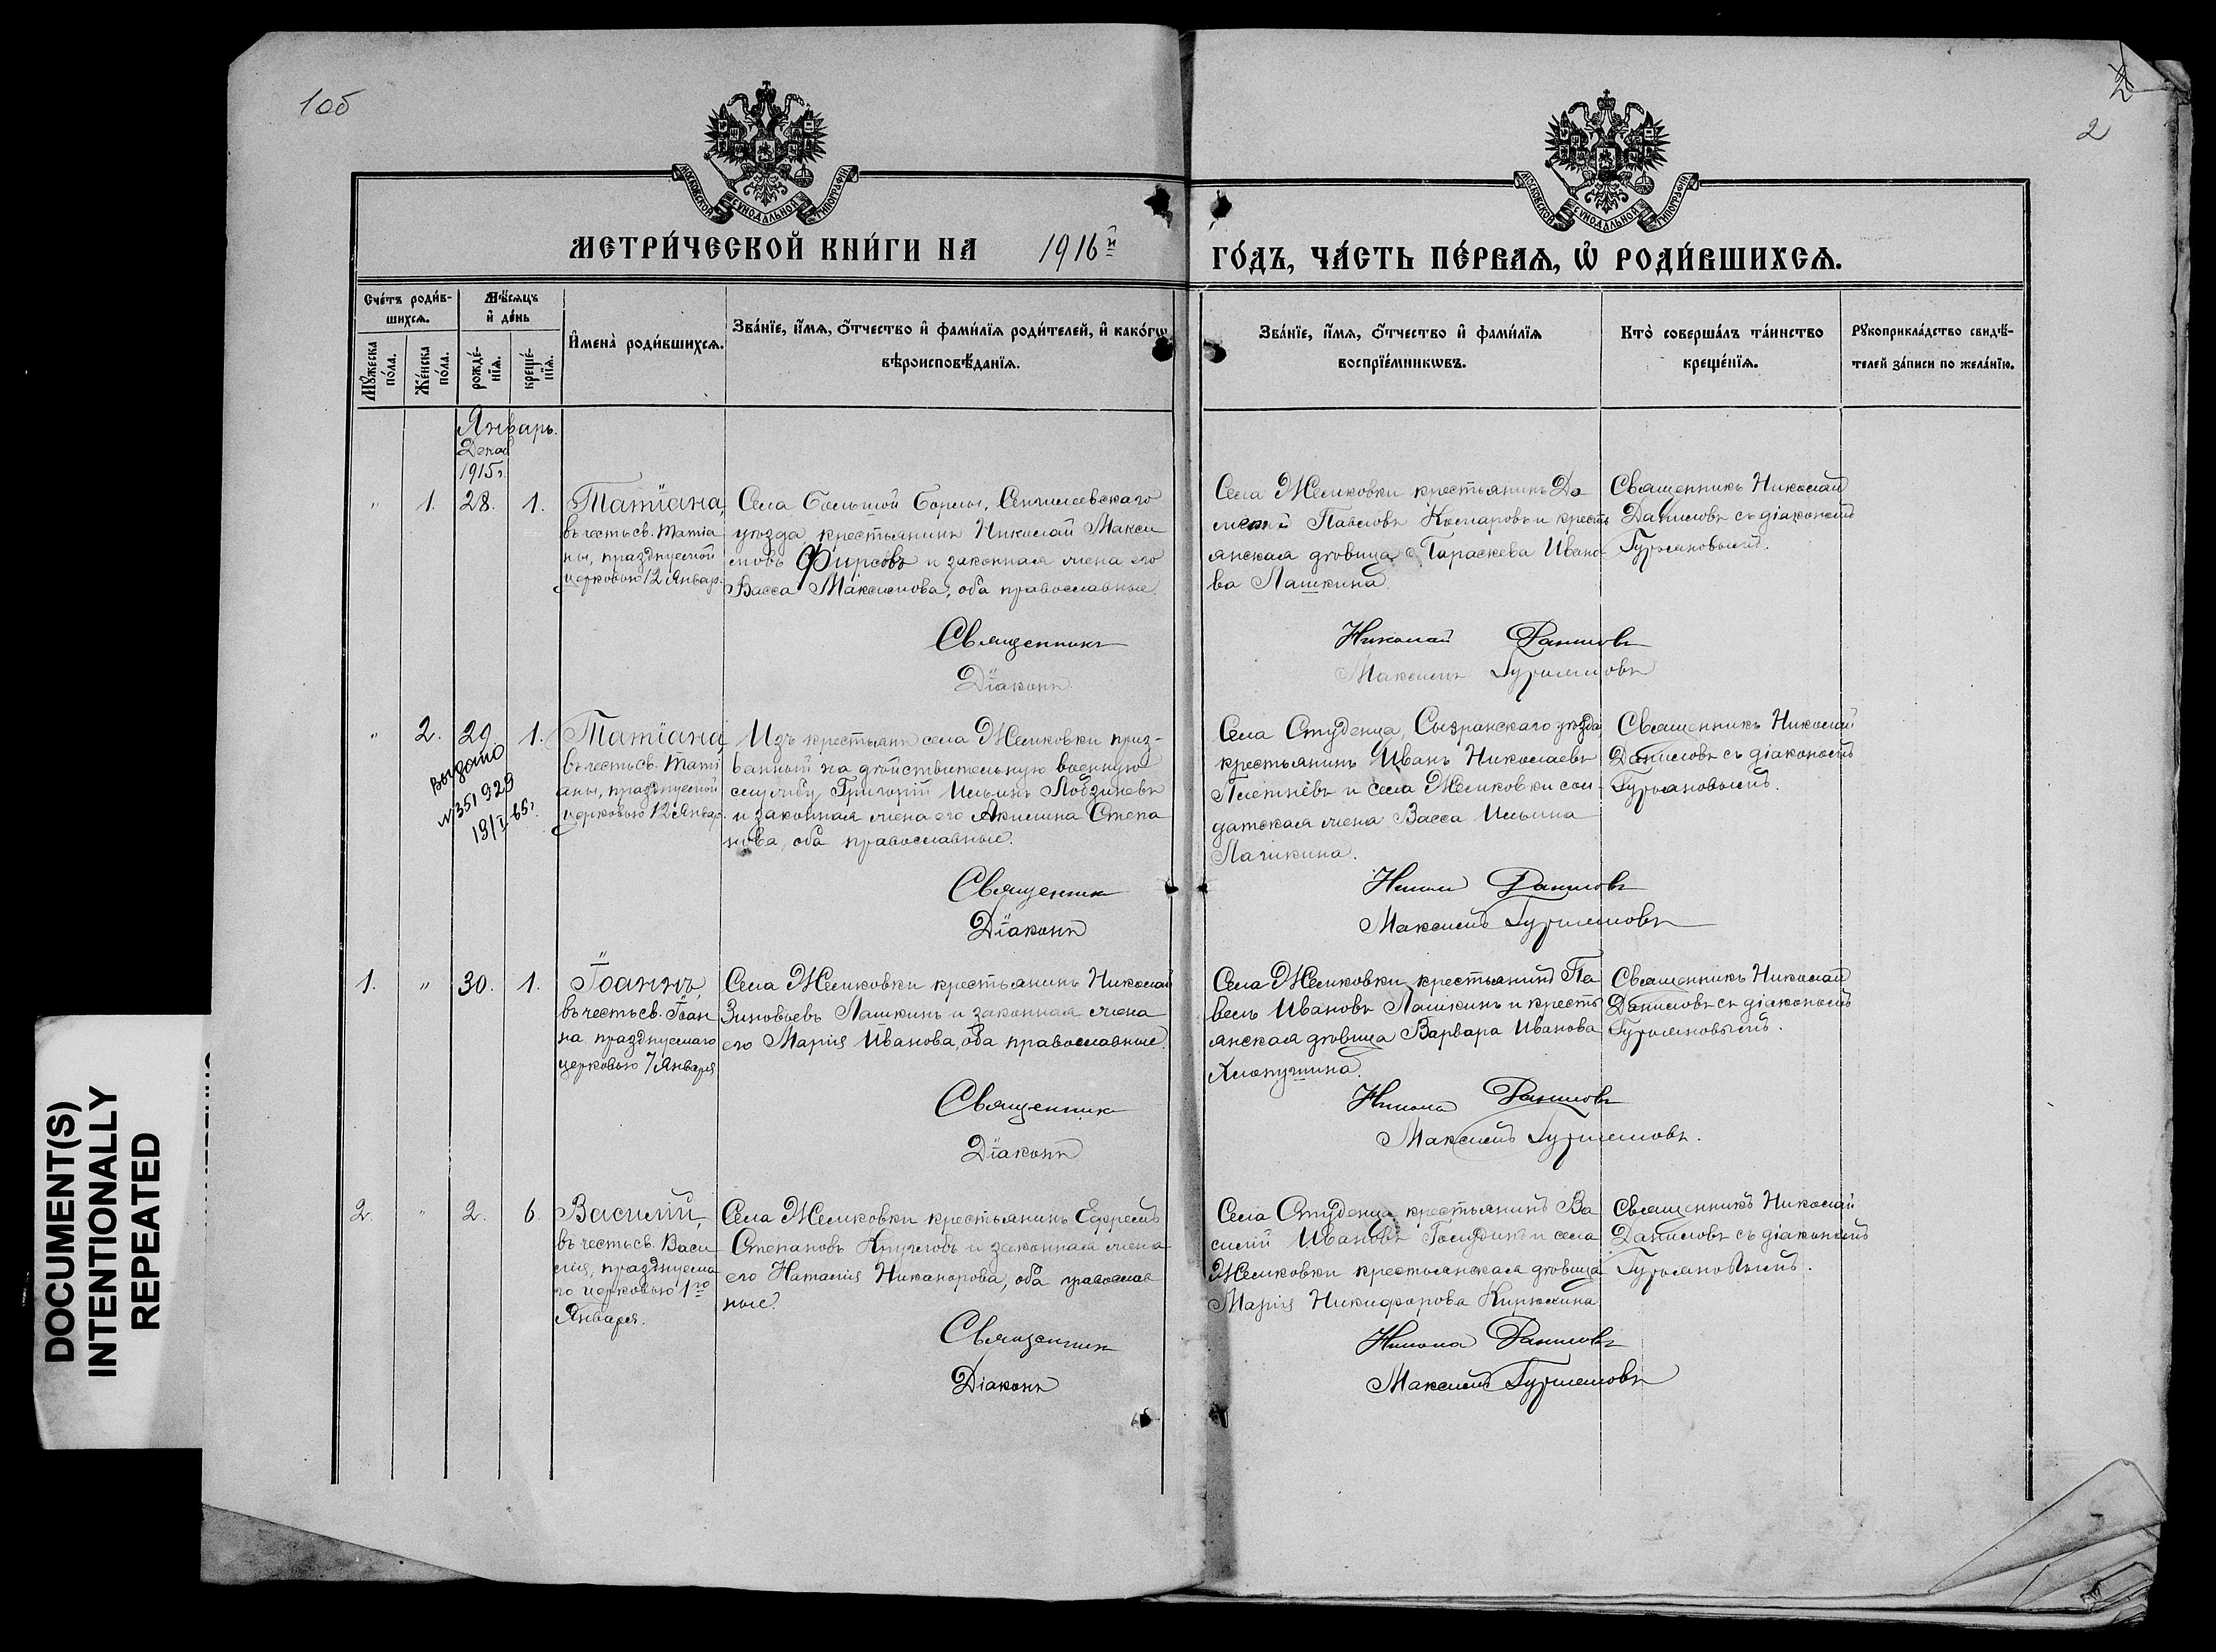 1об
2
2
МОСКОВСКОЙ СѴНОДАЛЬНОЙ ТИПОГРАФІИ
МОСКОВСКОЙ СѴНОДАЛЬНОЙ ТИПОГРАФІИ
МЕТРИ́ЧЕСКОЙ КНИ́ГИ НА 1916й
ГО́ДЪ, ЧА́СТЬ ПЕ́РВАѦ, Ѡ҆ РОДИ́ВШИХСѦ.
Сче́тъ роди́в-
шихсѧ.
Мꙋ́жеска
по́ла.
Же́нска
по́ла.
Мѣ́сѧцъ
и҆ де́нь
рожде́-
нїѧ.
креще́-
нїѧ.
И҆мена̀ роди́вшихсѧ.
Зва́нїе, и҆́мѧ, ѻ҆́тчество и҆ фами́лїѧ роди́телей, и҆ како́гѡ
вѣроисповѣ́данїѧ.
Зва́нїе, и҆́мѧ, ѻ҆́тчество и҆ фами́лїѧ
воспрїе́мникѡвъ.
Кто̀ соверша́лъ та́инство
креще́нїѧ.
Рꙋкоприкла́дство свидѣ́-
телей за́писи по жела́нїю.
Январь.
Декаб
1915г.
" 1. 28. 1.
Татіана,
въ честь св. Татіа
ны, празднуемой
церковью 12 Январ.
Села Большой Борлы, Сенгилеевскаго
уѣзда крестьянинъ Николай Макси
мовъ Фирсовъ и законная жена его
Васса Максимова, оба православные.
Священникъ
Діаконъ
Села Жемковки крестьянинъ До
Павловъ Комаровъ и кресть
янская дѣвица Параскева Ивано
ва Лашкина.
Николай Даниловъ
Максимъ
Священникъ Николай
Даниловъ съ діакономъ
" 2. 29. 1.
Выдано
№351929
19/I-65г.
Татіана,
въ честь св. Таті
аны, празднуемой
церковью 12 Январ.
Изъ крестьянъ села Жемковки приз-
ванный на дѣйствительную военную
службу Григорій Ильинъ Лобзиневъ
и законная жена его Акилина Степа
нова, оба православные.
Священник
Діаконъ
Села Студенца, Сызранскаго уѣзда
крестьянинъ Иванъ Николаевъ
и села Жемковки сол-
датская жена Васса Ильина
Лашкина.
Даниловъ
Максимъ
Священникъ Николай
Даниловъ съ діакономъ
1. " 30. 1.
Іоаннъ,
въ честь св. Іоан
на празднуемаго
церковью 7 Января
Села Жемковки крестьянинъ Николай
Зиновьевъ Лашкинъ и законная жена
его Марія Иванова, оба православные.
Священник
Діаконъ
Села Жемковки крестьянинъ Па
велъ Ивановъ Лашкинъ и кресть
янская дѣвица Варвара Иванова
Хлопушина.
Даниловъ
Максимъ
Священникъ Николай
Даниловъ съ діакономъ
2. " 2. 6.
Василій,
въ честь св. Васи
лія, празднуема
го церковью 1го
Января.
Села Жемковки крестьянинъ Ефремъ
Степановъ и законная жена
его Наталія Никанорова, оба православ
ные.
Священник
Діаконъ
Села Студенца крестьянинъ Ва
силій Ивановъ и села
Жемковки крестьянская дѣвица
Марія Никифорова Кирюхина
Даниловъ
Максимъ
Священникъ Николай
Даниловъ съ діакономъ
DOCUMENT(S)
INTENTIONALLY
REPEATED